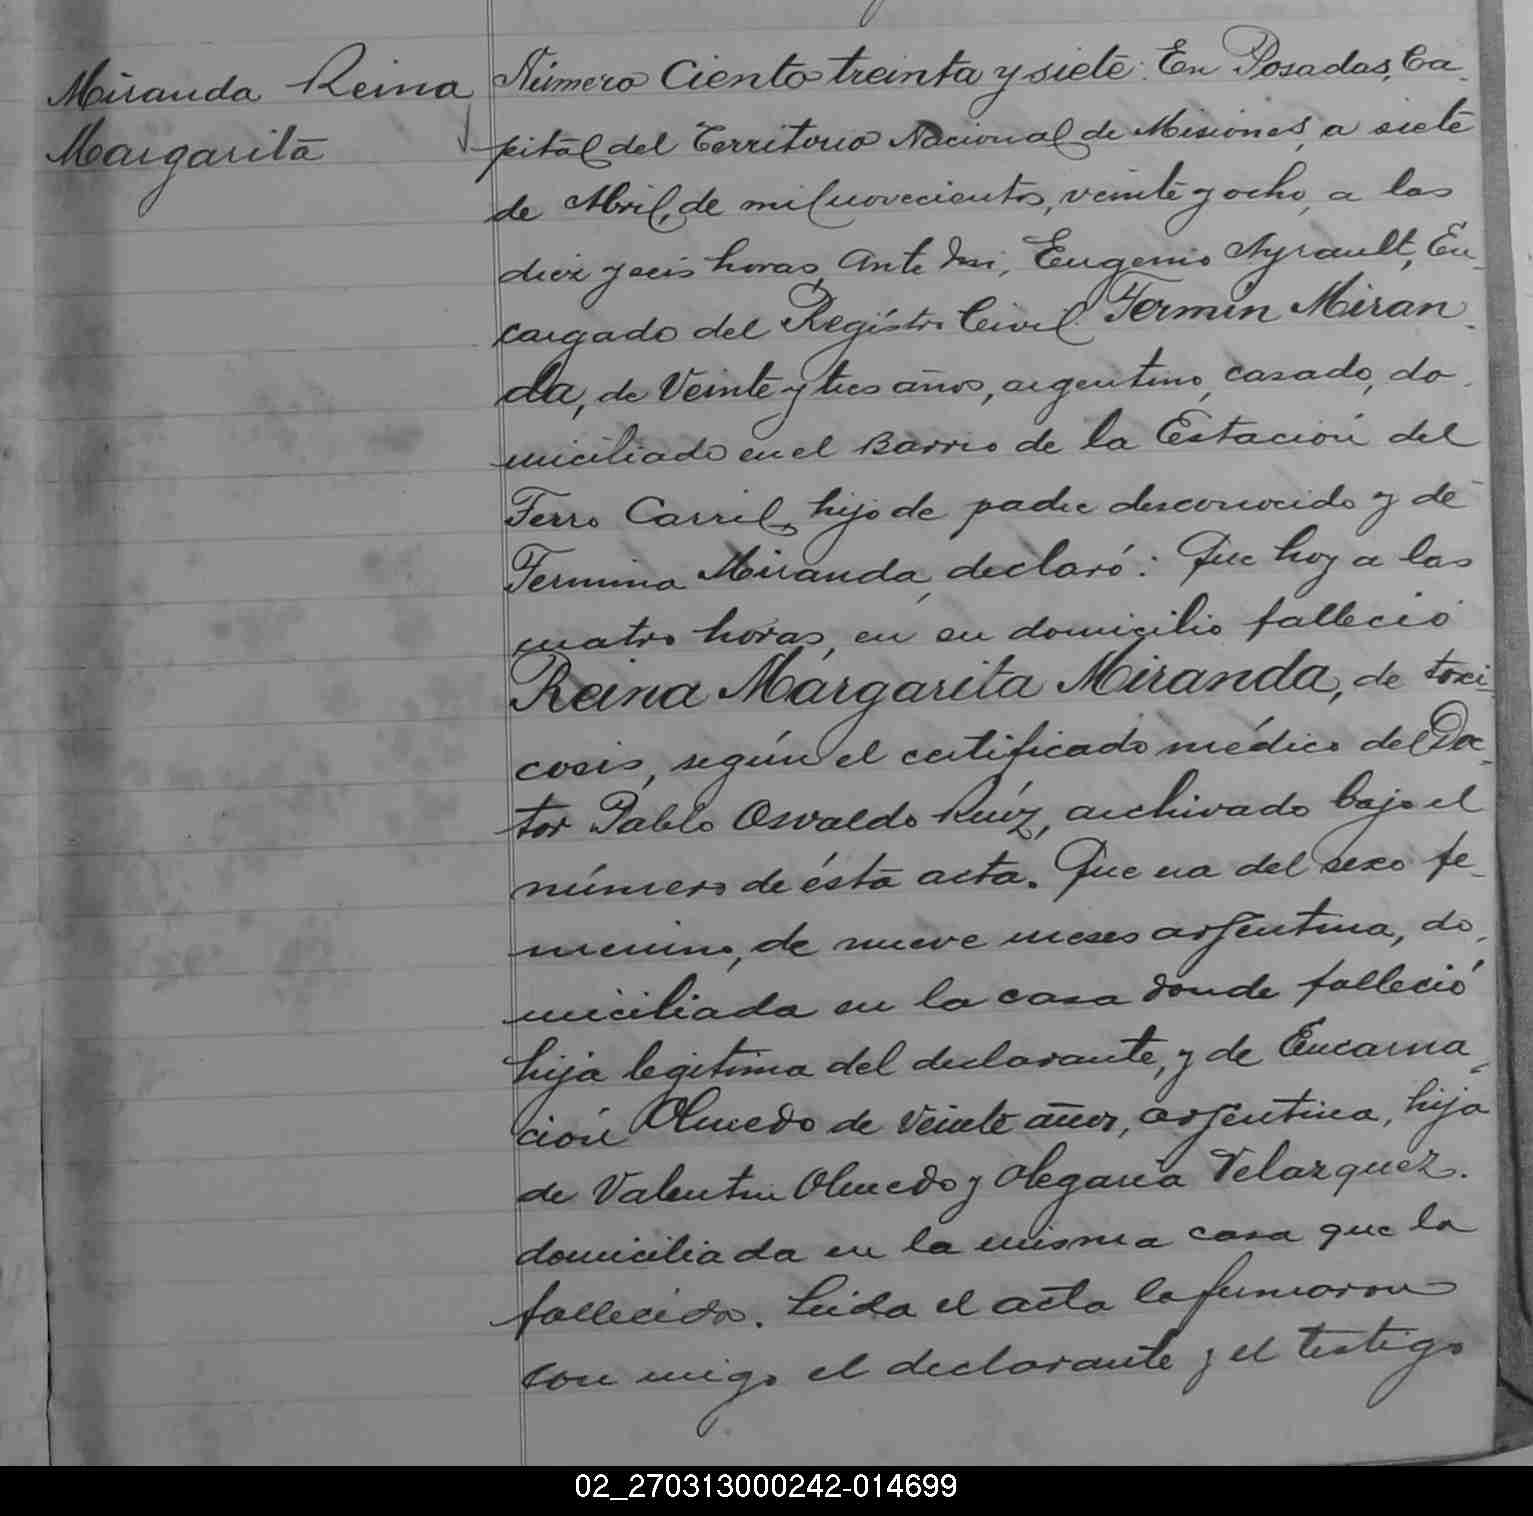 Miranda Reina
Margarita
Número Ciento treinta y siete: En Posadas, Ca-
pital del Territorio Nacional de Misiones, a siete
de Abril, de mil novecientos, veinte y ocho, a las
diez y seis horas, Ante mi, Eugenio Ayrault, En-
cargado del Registro Civil. Fermin Miran-
da, de Veinte y tres años, argentino, casado, do-
miciliado en el Barrio de la Estación del
Ferro Carril, hijo de padre desconocido y de
Fermina Miranda, declaró: Que hoy a las
cuatro horas, en su domicilio falleció
Reina Margarita Miranda, de toxi-
cosis, según el certificado médico del Doc-
tor Pablo Osvaldo Ruíz, archivado bajo el
número de ésta acta. Que era del sexo fe-
menino, de nueve meses argentina, do-
miciliada en la casa donde falleció
hija legitima del declarante, y de Encarna-
ción Olmedo de Veinte años, argentina, hija
de Valentin Olmedo y Olegaria Velazquez.
domiciliada en la misma casa que la
fallecida. Leida el acta la firmaron
con migo el declarante y el testigo
02_270313000242-014699